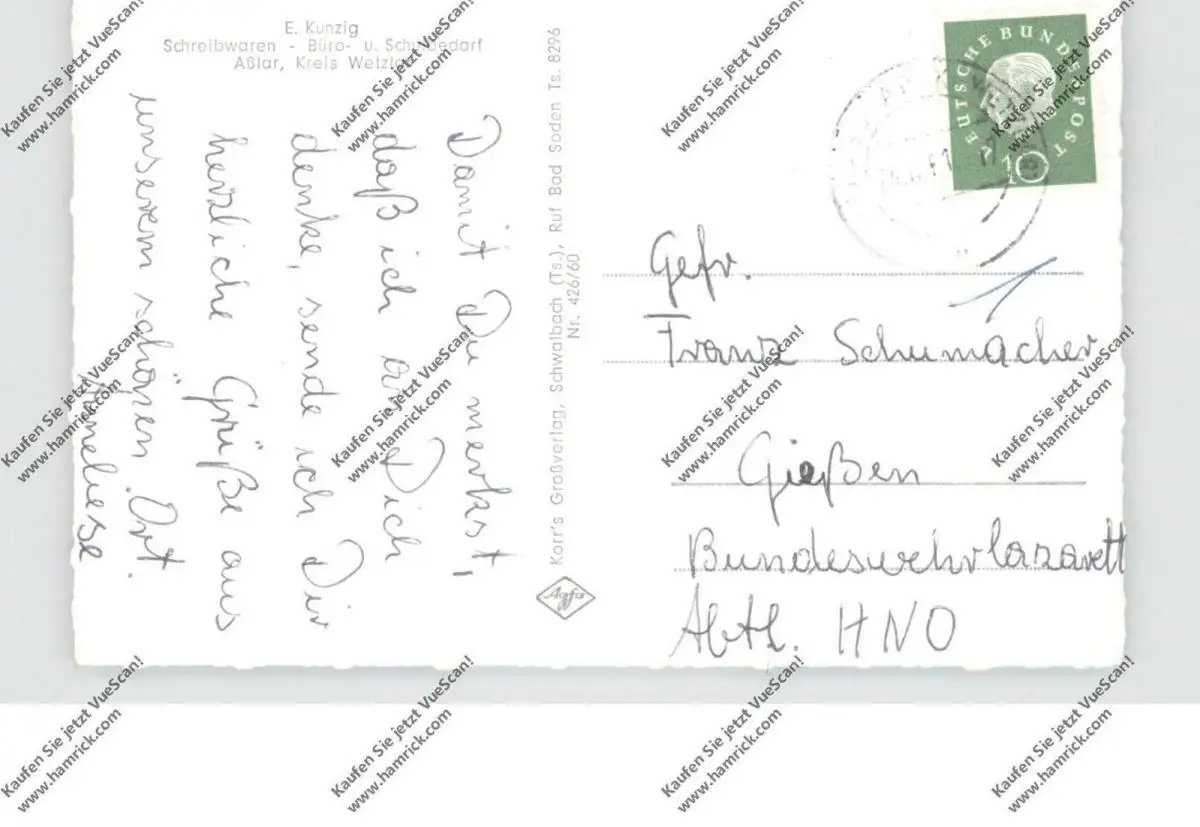 E. Kunzig
Schreibwaren - Büro- u. Schulbedarf
Aßlar, Kreis Wetzlar
Damit Du merkst,
daß ich an Dich
denke, sende ich Dir
herzliche Grüße aus
unserem schönen Ort.
Anneliese
Korr's Großverlag, Schwalbach (Ts.), Ruf Bad Soden Ts. 8296
Nr. 426/60
Agfa
DEUTSCHE BUNDESPOST
10
Gefr.
Franz Schumacher
Gießen
Bundeswehrlazarett
Abtl. HNO
Kaufen Sie jetzt VueScan!
www.hamrick.com
Kaufen Sie jetzt VueScan!
www.hamrick.com
Kaufen Sie jetzt VueScan!
www.hamrick.com
Kaufen Sie jetzt VueScan!
www.hamrick.com
Kaufen Sie jetzt VueScan!
www.hamrick.com
Kaufen Sie jetzt VueScan!
www.hamrick.com
Kaufen Sie jetzt VueScan!
www.hamrick.com
Kaufen Sie jetzt VueScan!
www.hamrick.com
Kaufen Sie jetzt VueScan!
www.hamrick.com
Kaufen Sie jetzt VueScan!
www.hamrick.com
Kaufen Sie jetzt VueScan!
www.hamrick.com
Kaufen Sie jetzt VueScan!
www.hamrick.com